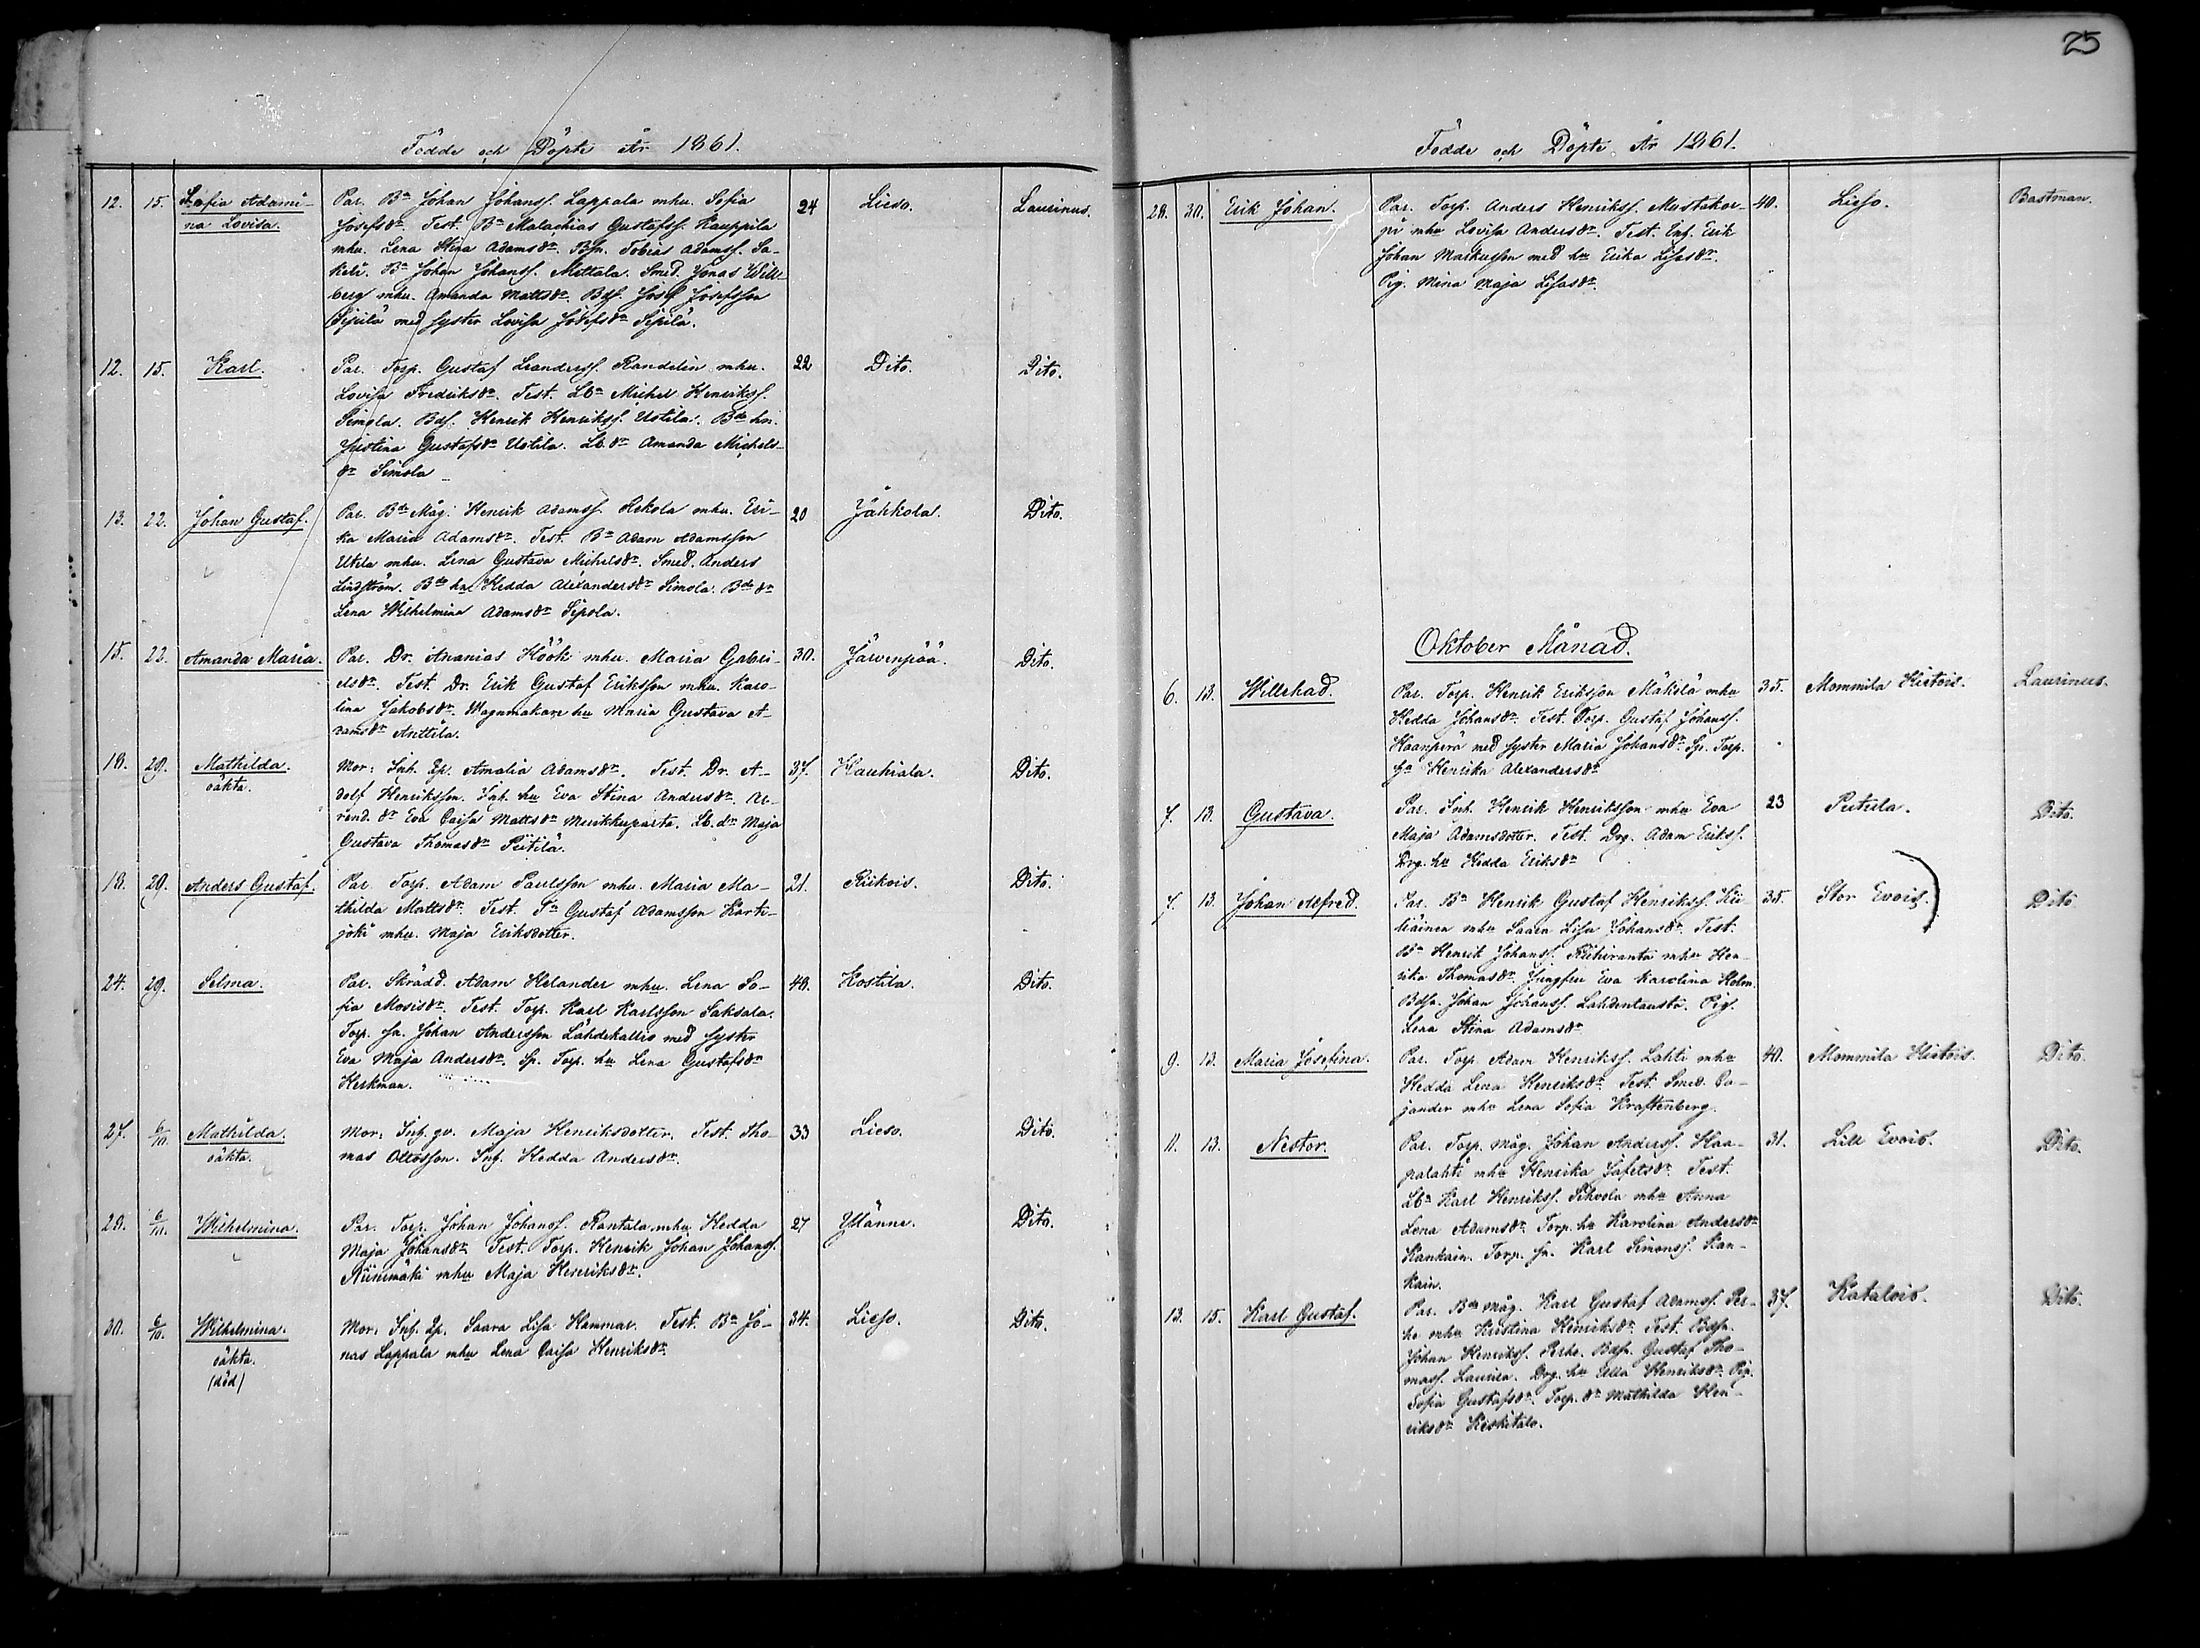 25
Födde och Döpte År 1861.
12. 15. Sofia Adami-
na Lovisa.
Par. Bn Johan Johanss. Lappala mhu. Sofia
Josefsdr. Test. Bn Malachias Gustafss. Kauppila
mhu. Lena Stina Adamsdr. Tobias Adamss.
Bn Johan Johanss. Mattala. Smed. Jonas Will-
berg mhu. Amanda Mattsdr. Bds. Josef Josefsson
Sipilä med syster Lovisa Josefsdr Sipilä.
24 Lieso. Laurinus.
12. 15. Karl.
Par. Torp. Gustaf Leanderss. Randelin mhu.
Lovisa Fredriksdr. Test. Lbn Michel Henrikss.
Simola. Bds. Henrik Henrikss. Ustila. Bde hu.
Justina Gustafsdr Ustila. Lb. dr Amanda Michels-
dr Simola
22 Dito. Dito.
13. 22. Johan Gustaf.
Par. Bde Måg. Henrik Adamss. Rekola mhu. Eri-
ka Maria Adamsdr. Test. Bn Adam Adamsson
Utila mhu. Lena Gustava Michelsdr. Smed. Anders
Lindström. Bde hu Hedda Alexandersdr Simola. Bde dr
Lena Wilhelmina Adamsdr Sipola.
20 Jahkola. Dito.
15. 22. Amanda Maria.
Par. Dr. Ananias Höök mhu. Maria Gabri-
elsdr. Test. Dr. Erik Gustaf Eriksson mhu. Karo-
lina Jakobsdr. Wagnmakare hu Maria Gustava A-
damsdr Anttila.
30. Järvenpää. Dito.
18. 29. Mathilda.
oäkta.
Mor: Inh. Amalia Adamsdr. Test. Dr. A-
dolf Henriksson. Inh. hu Eva Stina Andersdr. Ar-
rend. dr Eva Caisa Mattsdr Musikkuparta. Lb. dr Maja
Gustava Thomasdr Piitilä.
37. Haukiala. Dito.
18. 29. Anders Gustaf.
Par. Torp. Adam Paulsson mhu. Maria Ma-
thilda Mattsdr. Test. Gustaf Adamsson Karti-
joki mhu. Maja Eriksdotter.
21. Riikois. Dito.
24. 29. Selma.
Par. Skrädd. Adam Helander mhu. Lena So-
fia Mosisdr. Test. Torp. Karl Karlsson Saksala.
Torp. sn. Johan Andersson Lähdekallio med syster
Eva Maja Andersdr. Sp. Torp. hu Lena Gustafsdr
Kerkman.
40. Kostila. Dito.
27. 6/10. Mathilda.
oäkta.
Mor: Inh. qv. Maja Henriksdotter. Test. Tho-
mas Ottosson. Inh. Hedda Andersdr.
33 Lieso. Dito.
28. 6/10. Wilhelmina.
Par. Torp. Johan Johanss. Rantala mhu. Hedda
Maja Johansdr. Test. Torp. Henrik Johan Johanss.
Niinimäki mhu Maja Henriksdr.
27 Ylänne. Dito.
30. 6/10. Wilhelmina.
oäkta.
(död)
Mor: Inh. Saara Lisa Hammar. Test. Bn Jo-
nas Lappala mhu Lena Caisa Henriksdr.
34. Lieso. Dito.
Födde och Döpte År 1861.
28. 30. Erik Johan.
Par. Torp. Anders Henrikss. Mustakor-
pi mhu Lovisa Andersdr. Test. Enh. Erik
Johan Markusson med hu Erika Lisasdr.
Pig. Mina Maja Lisasdr.
40. Lieso. Bastman.
Oktober Månad.
6. 13. Willehad.
Par. Torp. Henrik Eriksson Mäkilä mhu
Hedda Johansdr. Test. Torp. Gustaf Johanss.
Haanperä med syster Maria Johansdr. Sp. Torp.
Henrika Alexandersdr.
35. Mommila Hietois. Laurinus.
7. 13. Gustava.
Par. Inh. Henrik Henriksson mhu Eva
Maja Adamsdotter. Test. Drg. Adam Erikss.
Drg. hu Hedda Eriksdr
23 Putula. Dito.
7. 13. Johan Alfred.
Par. Bn Henrik Gustaf Henrikss. Kii-
liäinen mhu Saara Lisa Johansdr. Test.
Bn Henrik Johanss. Riihiranta mhu Hen-
rika Thomasdr. Jungfru Eva Karolina Holm.
Bdsn. Johan Johanss. Lahdentausta. Pig.
Lena Stina Adamsdr
35. Stor Evois. Dito.
9. 13. Maria Josefina.
Par. Torp. Adam Henrikss. Lahti mhu
Hedda Lena Henriksdr. Test. Smed. Pa-
jander mhu Lena Sofia Kraftenberg.
40. Mommila Hietois. Dito.
11. 13. Nestor.
Par. Torp. måg. Johan Anderss. Haa-
palahti mhu Henrika Jafetsdr. Test.
Lbn Karl Henrikss. Pihvola mhu Anna
Lena Adamsdr. Torp. hu Karolina Andersdr
Kankain. Torp. sn. Karl Simonss. Kan-
kain.
31. Lill Evois. Dito.
13. 15. Karl Gustaf.
Par. Bde måg. Karl Gustaf Adamss. Per-
ho mhu Kristina Henriksdr. Test. Bdsn.
Johan Henrikss. Perho. Bdsn. Gustaf Tho-
mass. Laurila. Drg. hu Ulla Henriksdr. Pig.
Sofia Gustafsdr. Torp. dr Mathilda Hen-
riksdr Keskitalo.
37. Katalois. Dito.